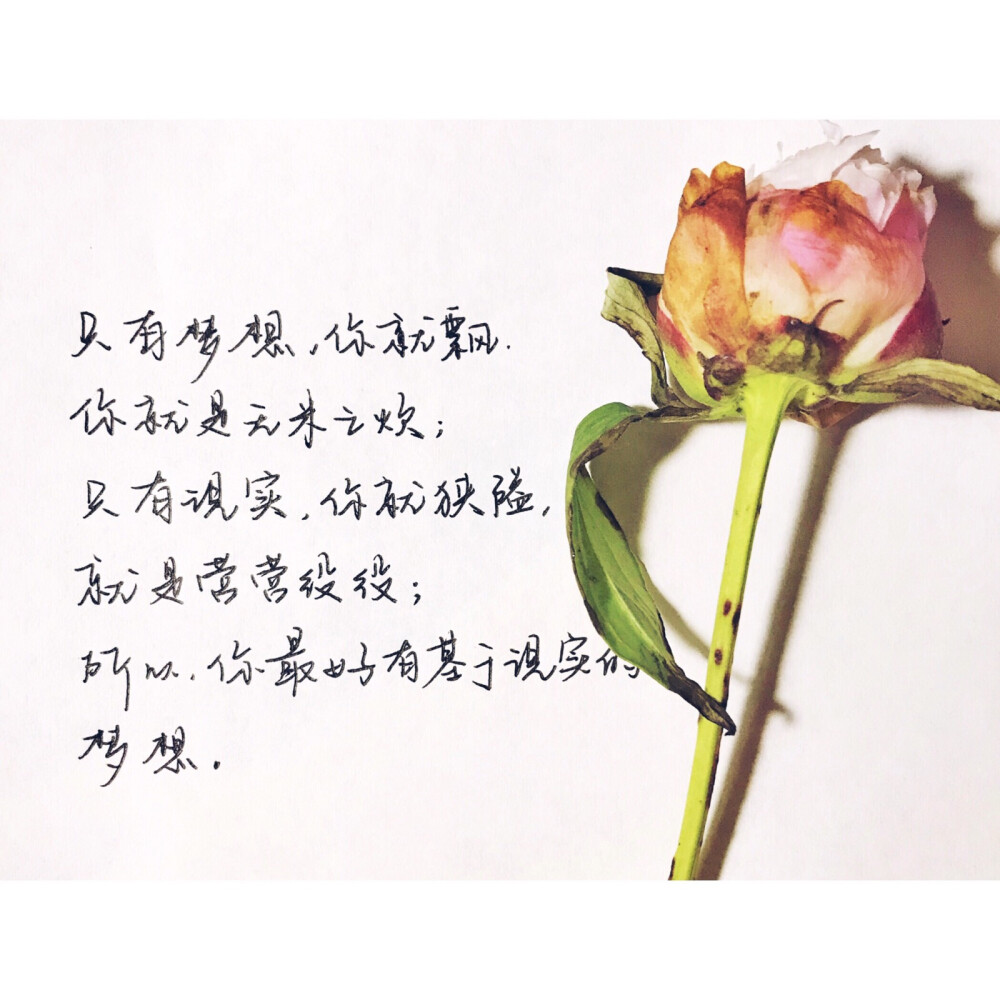 只有梦想,你就飘.
你就是无米之炊;
只有现实,你就狭隘,
就是营营役役;
所以,你最好有基于现实的
梦想.